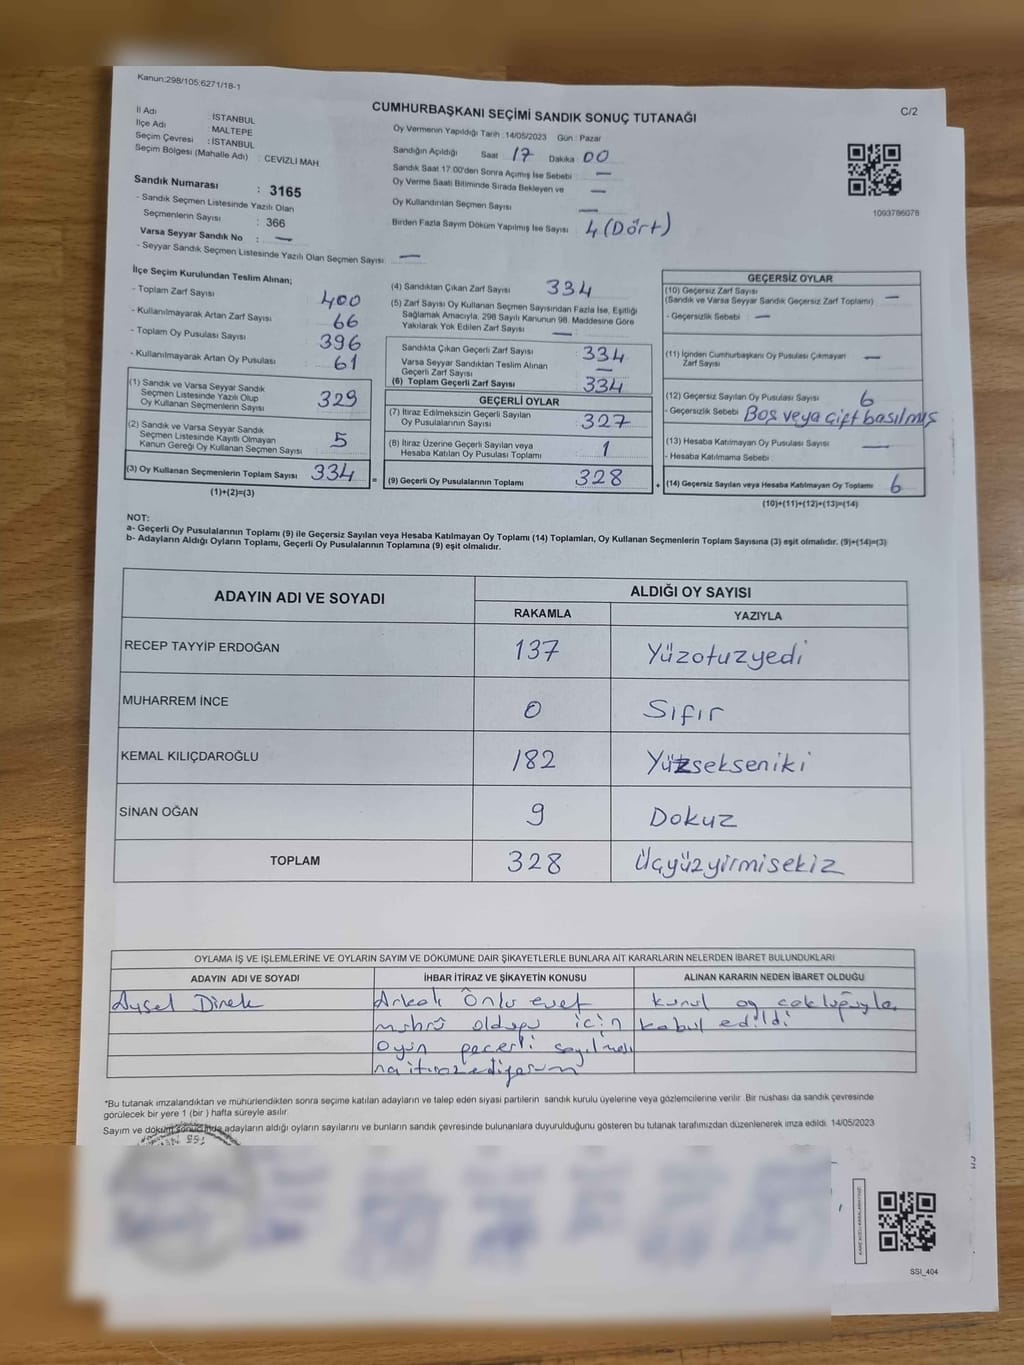 Kanun:298/105:6271/18-1
CUMHURBAŞKANI SEÇİMİ SANDIK SONUÇ TUTANAĞI
C/2
İl Adı : İSTANBUL
İlçe Adı : MALTEPE
Seçim Çevresi : İSTANBUL
Seçim Bölgesi (Mahalle Adı) : CEVİZLİ MAH
Sandık Numarası : 3165
- Sandık Seçmen Listesinde Yazılı Olan
Seçmenlerin Sayısı : 366
Varsa Seyyar Sandık No : —
- Seyyar Sandık Seçmen Listesinde Yazılı Olan Seçmen Sayısı: —
Oy Vermenin Yapıldığı Tarih : 14/05/2023 Gün : Pazar
Sandığın Açıldığı Saat 17 Dakika 00
Sandık Saat 17.00'den Sonra Açımış İse Sebebi : —
Oy Verme Saati Bitiminde Sırada Bekleyen ve —
Oy Kullandırılan Seçmen Sayısı —
Birden Fazla Sayım Döküm Yapılmış İse Sayısı : 4 (Dört)
1093786078
İlçe Seçim Kurulundan Teslim Alınan;
- Toplam Zarf Sayısı 400
- Kullanılmayarak Artan Zarf Sayısı 66
- Toplam Oy Pusulası Sayısı 396
- Kullanılmayarak Artan Oy Pusulası 61
(1) Sandık ve Varsa Seyyar Sandık
Seçmen Listesinde Yazılı Olup
Oy Kullanan Seçmenlerin Sayısı 329
(2) Sandık ve Varsa Seyyar Sandık
Seçmen Listesinde Kayıtlı Olmayan
Kanun Gereği Oy Kullanan Seçmen Sayısı 5
(3) Oy Kullanan Seçmenlerin Toplam Sayısı 334 =
(1)+(2)=(3)
(4) Sandıktan Çıkan Zarf Sayısı 334
(5) Zarf Sayısı Oy Kullanan Seçmen Sayısından Fazla İse, Eşitliği
Sağlamak Amacıyla, 298 Sayılı Kanunun 98. Maddesine Göre
Yakılarak Yok Edilen Zarf Sayısı —
Sandıkta Çıkan Geçerli Zarf Sayısı 334
Varsa Seyyar Sandıktan Teslim Alınan
Geçerli Zarf Sayısı —
(6) Toplam Geçerli Zarf Sayısı 334
GEÇERLİ OYLAR
(7) İtiraz Edilmeksizin Geçerli Sayılan
Oy Pusulalarının Sayısı 327
(8) İtiraz Üzerine Geçerli Sayılan veya
Hesaba Katılan Oy Pusulası Toplamı 1
(9) Geçerli Oy Pusulalarının Toplamı 328 +
GEÇERSİZ OYLAR
(10) Geçersiz Zarf Sayısı
(Sandık ve Varsa Seyyar Sandık Geçersiz Zarf Toplamı) —
- Geçersizlik Sebebi : —
(11) İçinden Cumhurbaşkanı Oy Pusulası Çıkmayan
Zarf Sayısı —
(12) Geçersiz Sayılan Oy Pusulası Sayısı 6
- Geçersizlik Sebebi Boş veya çift basılmış
(13) Hesaba Katılmayan Oy Pusulası Sayısı —
- Hesaba Katılmama Sebebi :
(14) Geçersiz Sayılan veya Hesaba Katılmayan Oy Toplamı 6
(10)+(11)+(12)+(13)=(14)
NOT:
a- Geçerli Oy Pusulalarının Toplamı (9) ile Geçersiz Sayılan veya Hesaba Katılmayan Oy Toplamı (14) Toplamları, Oy Kullanan Seçmenlerin Toplam Sayısına (3) eşit olmalıdır. (9)+(14)=(3)
b- Adayların Aldığı Oyların Toplamı, Geçerli Oy Pusulalarının Toplamına (9) eşit olmalıdır.
ADAYIN ADI VE SOYADI
ALDIĞI OY SAYISI
RAKAMLA YAZIYLA
RECEP TAYYİP ERDOĞAN 137 Yüzotuzyedi
MUHARREM İNCE 0 Sıfır
KEMAL KILIÇDAROĞLU 182 Yüzsekseniki
SİNAN OĞAN 9 Dokuz
TOPLAM 328 Üçyüzyirmisekiz
OYLAMA İŞ VE İŞLEMLERİNE VE OYLARIN SAYIM VE DÖKÜMÜNE DAİR ŞİKAYETLERLE BUNLARA AİT KARARLARIN NELERDEN İBARET BULUNDUKLARI
ADAYIN ADI VE SOYADI İHBAR İTİRAZ VE ŞİKAYETİN KONUSU ALINAN KARARIN NEDEN İBARET OLDUĞU
Aysel Direk Arkalı Önlü evet kurul oy çokluğuyla
mührü olduğu için kabul edildi
Oyun geçerli sayılması
na itiraz ediyorum
*Bu tutanak imzalandıktan ve mühürlendikten sonra seçime katılan adayların ve talep eden siyasi partilerin sandık kurulu üyelerine veya gözlemcilerine verilir. Bir nüshası da sandık çevresinde
görülecek bir yere 1 (bir ) hafta süreyle asılır.
Sayım ve döküm sonucunda adayların aldığı oyların sayılarını ve bunların sandık çevresinde bulunanlara duyurulduğunu gösteren bu tutanak tarafımızdan düzenlenerek imza edildi. 14/05/2023
SSI_404